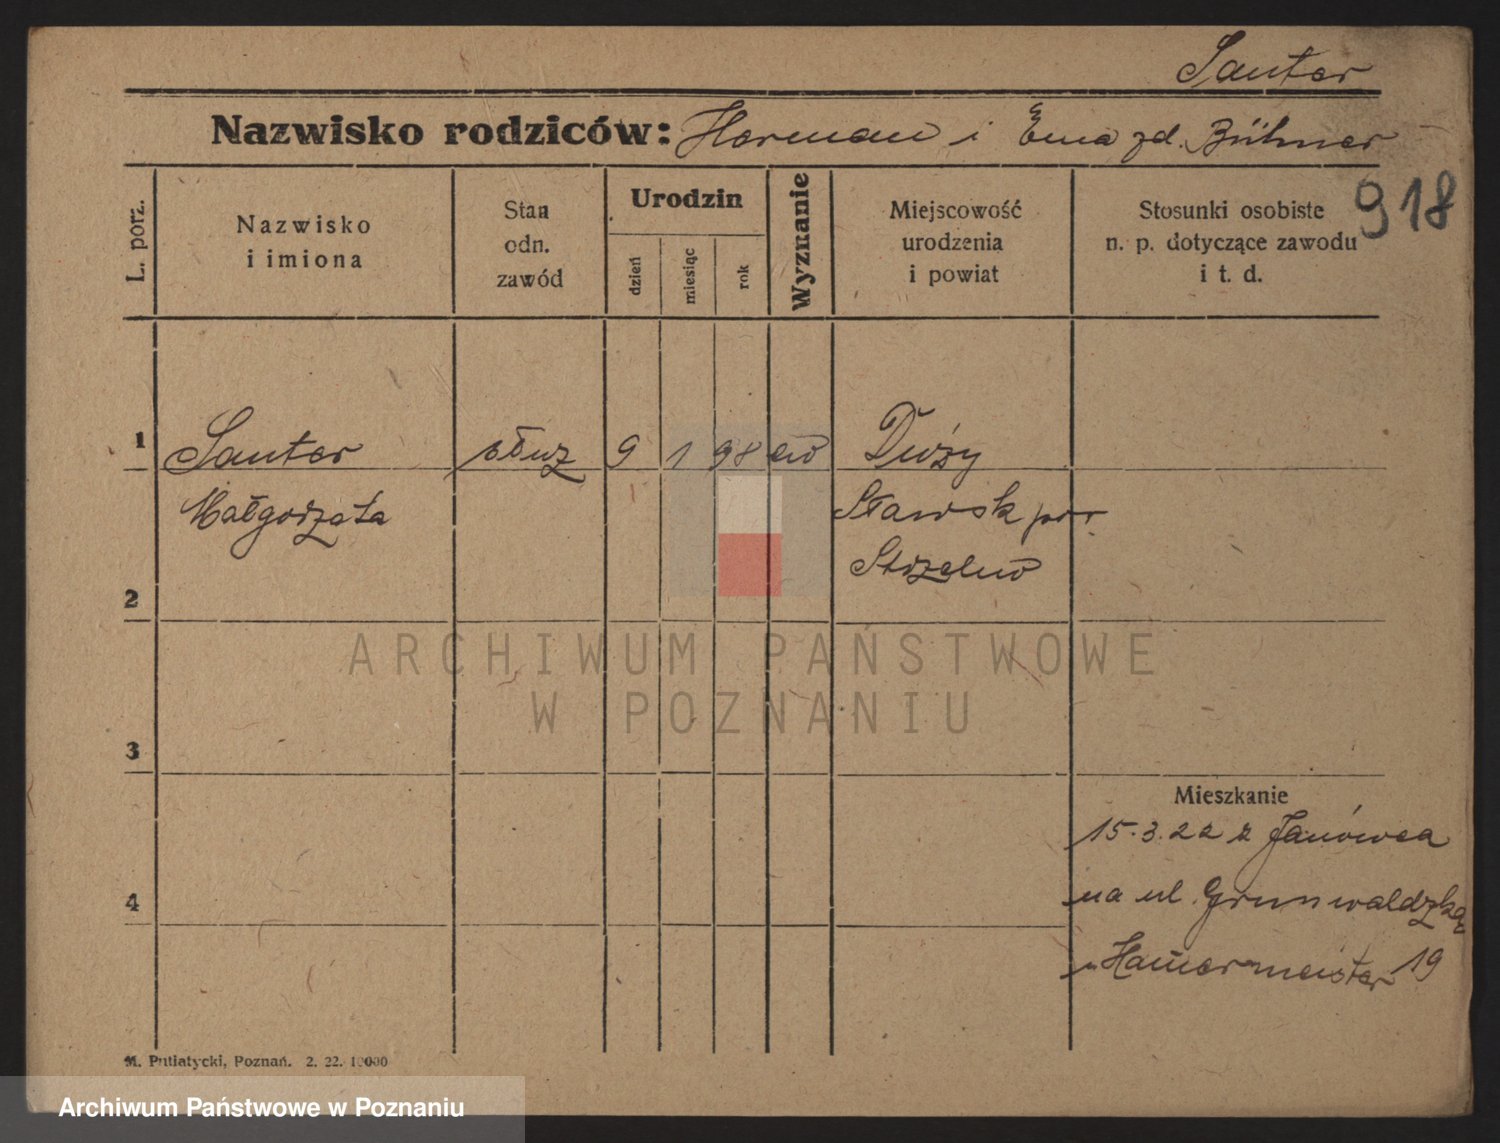 Sauter
Nazwisko rodziców: Herman i Ema zd. Bühner
918
L. porz.
Nazwisko
i imiona
Stan
odn.
zawód
Urodzin
dzień
miesiąc
rok
Wyznanie
Miejscowość
urodzenia
i powiat
Stosunki osobiste
n. p. dotyczące zawodu
i t. d.
1
Sauter służ 9 1 98 ew Duży
Małgorzata Sławsk pow.
Strzelno
2
3
4
ARCHIWUM PAŃSTWOWE
W POZNANIU
Mieszkanie
15.3.22 z Janówca
na ul. Grunwaldzką
19
M. Putiatycki, Poznań. 2. 22. 10000
Archiwum Państwowe w Poznaniu